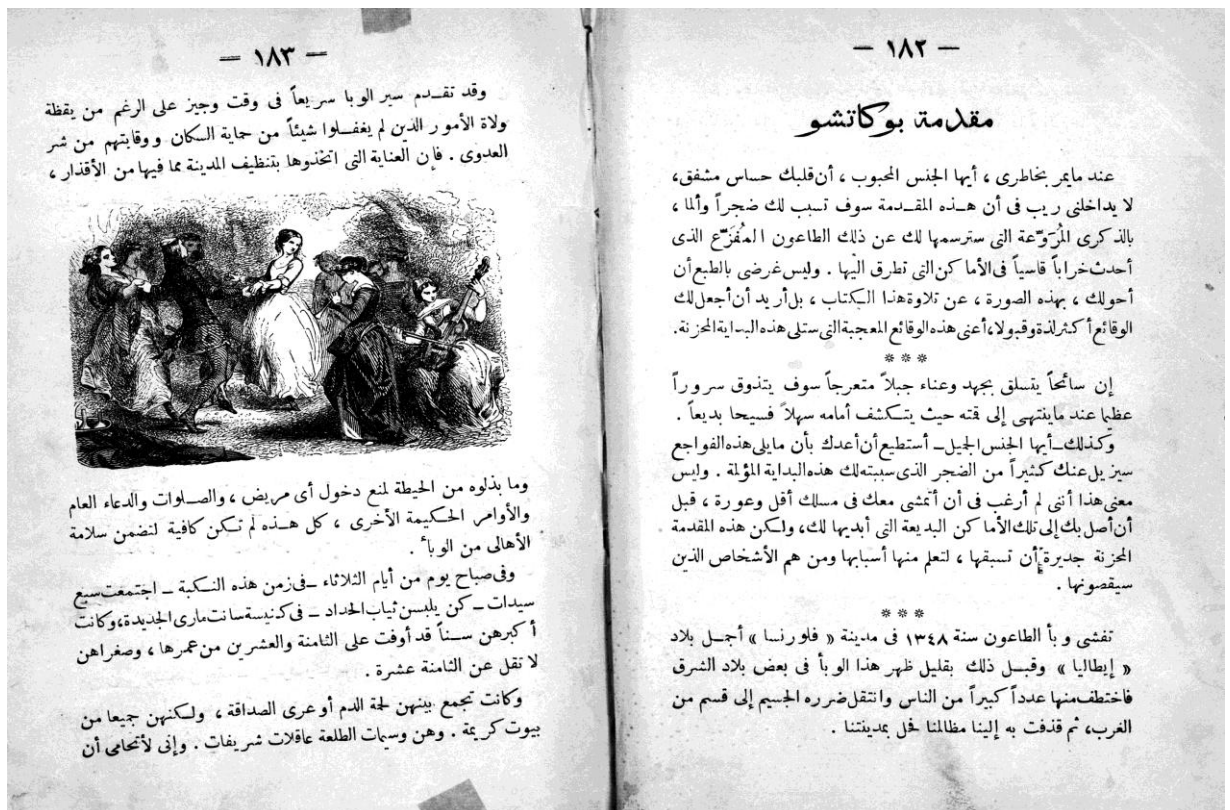 — ١٨٢ —
مقدمة بوكاتشو
عند مايمر بخاطرى ، أيها الجنس المحبوب ، أن قلبك حساس مشفق،
لا يداخلنى ريب فى أن هـذه المقـدمة سوف تسبب لك ضجراً وألما ،
بالذكرى المُرَوّعة التى سترسمها لك عن ذلك الطاعون المُفَزّع الذى
أحدث خراباً قاسياً فى الأماكن التى تطرق اليها . وليس غرضى بالطبع أن
أحولك ، بهذه الصورة ، عن تلاوة هذا الكتاب ، بل أريد أن أجعل لك
الوقائع أكثر لذة وقبولا، أعنى هذه الوقائع المعجبة التى ستلى هذه البداية المحزنة.
* * *
إن سائحاً يتسلق بجهد وعناء جبلاً متعرجاً سوف يتذوق سروراً
عظيما عند ماينتهى إلى قمته حيث يتكشف أمامه سهلاً فسيحا بديعاً .
وكذلك ـ أيها الجنس الجميل ـ أستطيع أن أعدك بأن مايلى هذه الفواجع
سيزيل عنك كثيراً من الضجر الذى سببته لك هذه البداية المؤلمة . وليس
معنى هذا أننى لم أرغب فى أن أتمشى معك فى مسلك أقل وعورة ، قبل
أن أصل بك إلى تلك الأماكن البديعة التى أبديها لك، ولكن هذه المقدمة
المحزنة جديرة أن تسبقها ، لتعلم منها أسبابها ومن هم الأشخاص الذين
سيقصونها .
* * *
تفشى وبأ الطاعون سنة ١٣٤٨ فى مدينة « فلورنسا » أجمـل بلاد
« إيطاليا » وقبـل ذلك بقليل ظهر هذا الوبأ فى بعض بلاد الشرق
فاختطف منها عدداً كبيراً من الناس وانتقل ضرره الجسيم إلى قسم من
الغرب، ثم قذفت به إلينا مظالمنا فحل بمدينتنا .
— ١٨٣ —
وقد تقـدم سير الوبا سريعاً فى وقت وجيز على الرغم من يقظة
ولاة الأمور الذين لم يغفـلوا شيئاً من حماية السكان ووقايتهم من شر
العدوى . فإن العناية التى اتخذوها بتنظيف المدينة مما فيها من الأقذار ،
وما بذلوه من الحيطة لمنع دخول أى مريض ، والصـلوات والدعاء العام
والأوامر الحـكيمة الأخرى ، كل هـذه لم تـكن كافية لتضمن سلامة
الأهالى من الوبأ .
وفى صباح يوم من أيام الثلاثاء ـ فى زمن هذه النـكبة ـ اجتمعت سبع
سيدات ـ كن يلبسن ثياب الحداد ـ فى كنيسة سانت مارى الجديدة، وكانت
أكبرهن سـناً قد أوفت على الثامنة والعشرين من عمرها ، وصغراهن
لا تقل عن الثامنة عشرة .
وكانت تجمع بينهن لحمة الدم أو عرى الصداقة ، ولـكنهن جميعا من
بيوت كريمة . وهن وسيمات الطلعة عاقلات شريفات . وإنى لأتحامى أن